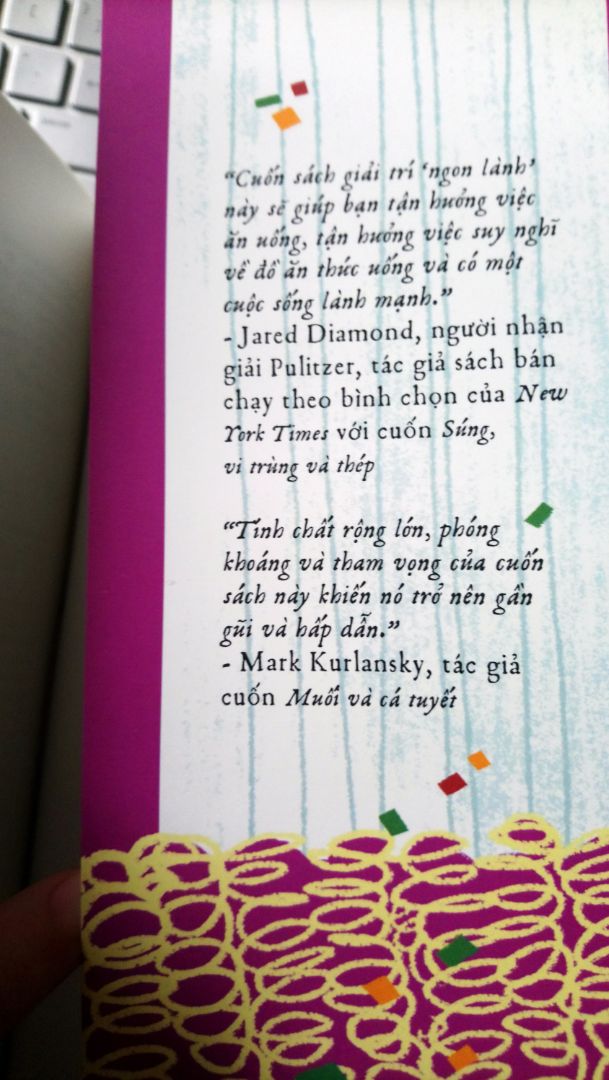 “Cuốn sách giải trí ‘ngon lành’
này sẽ giúp bạn tận hưởng việc
ăn uống, tận hưởng việc suy nghĩ
về đồ ăn thức uống và có một
cuộc sống lành mạnh.”
- Jared Diamond, người nhận
giải Pulitzer, tác giả sách bán
chạy theo bình chọn của New
York Times với cuốn Súng,
vi trùng và thép
“Tính chất rộng lớn, phóng
khoáng và tham vọng của cuốn
sách này khiến nó trở nên gần
gũi và hấp dẫn.”
- Mark Kurlansky, tác giả
cuốn Muối và cá tuyết